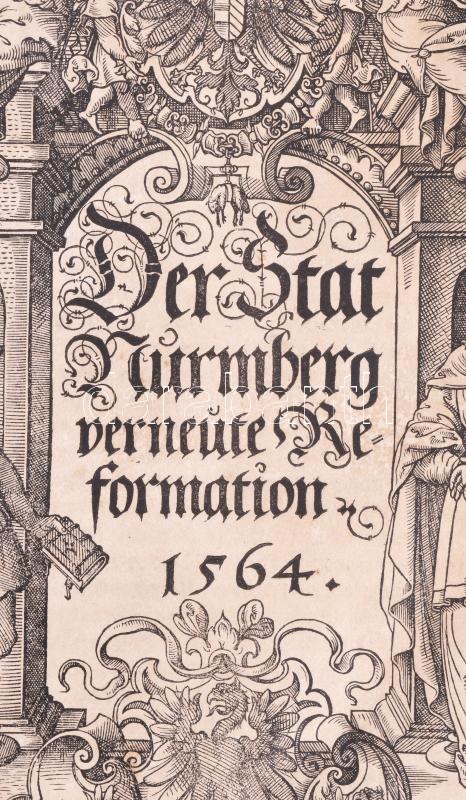 Der Stat
Nürmberg
verneute Re-
formation.
1564.
darabanth